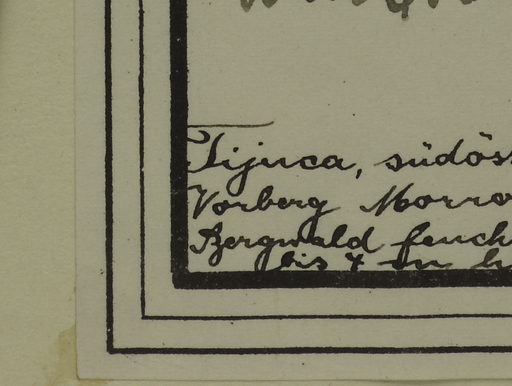 Tijuca, südös
Vorberg Morro
Bergwald feuch
bis 4 m h